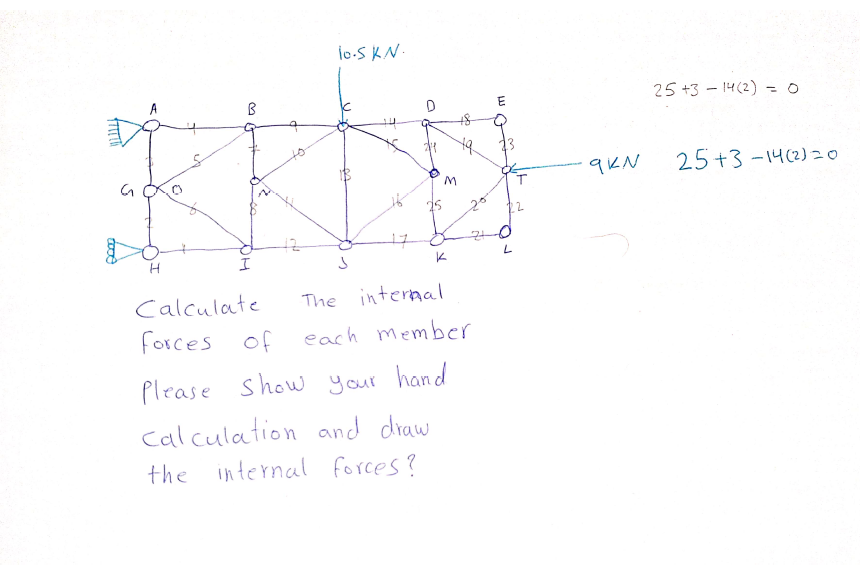 10.5 KN.
25 +3 - 14(2) = 0
A
B
C
D
E
4
9
14
18
3
5
7
10
13
15
24
19
23
9KN
25+3-14(2)=0
G
O
N
M
T
2
6
8
11
16
25
20
22
1
12
17
21
H
I
J
K
L
Calculate The internal
forces of each member
Please show your hand
calculation and draw
the internal forces?